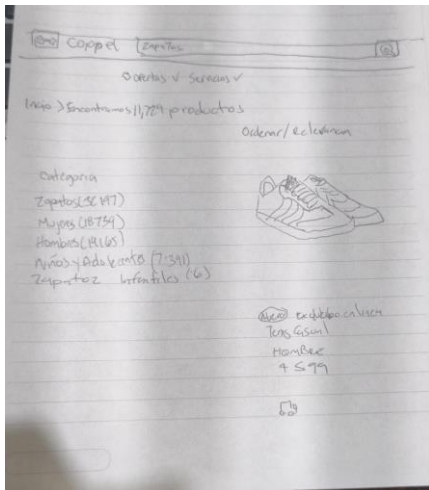 Coppel Zapatos
Ofertas v Servicios v
Inicio > Encontramos 11,729 productos
Ordenar / Relevancia
Categoria
Zapatos
Mujeres (18734)
Hombres (14165)
Niños y Adolecente (7.391)
Zapatoz Infantiles (6)
exclusivo en linea
Tenis Casual
HomBre
599